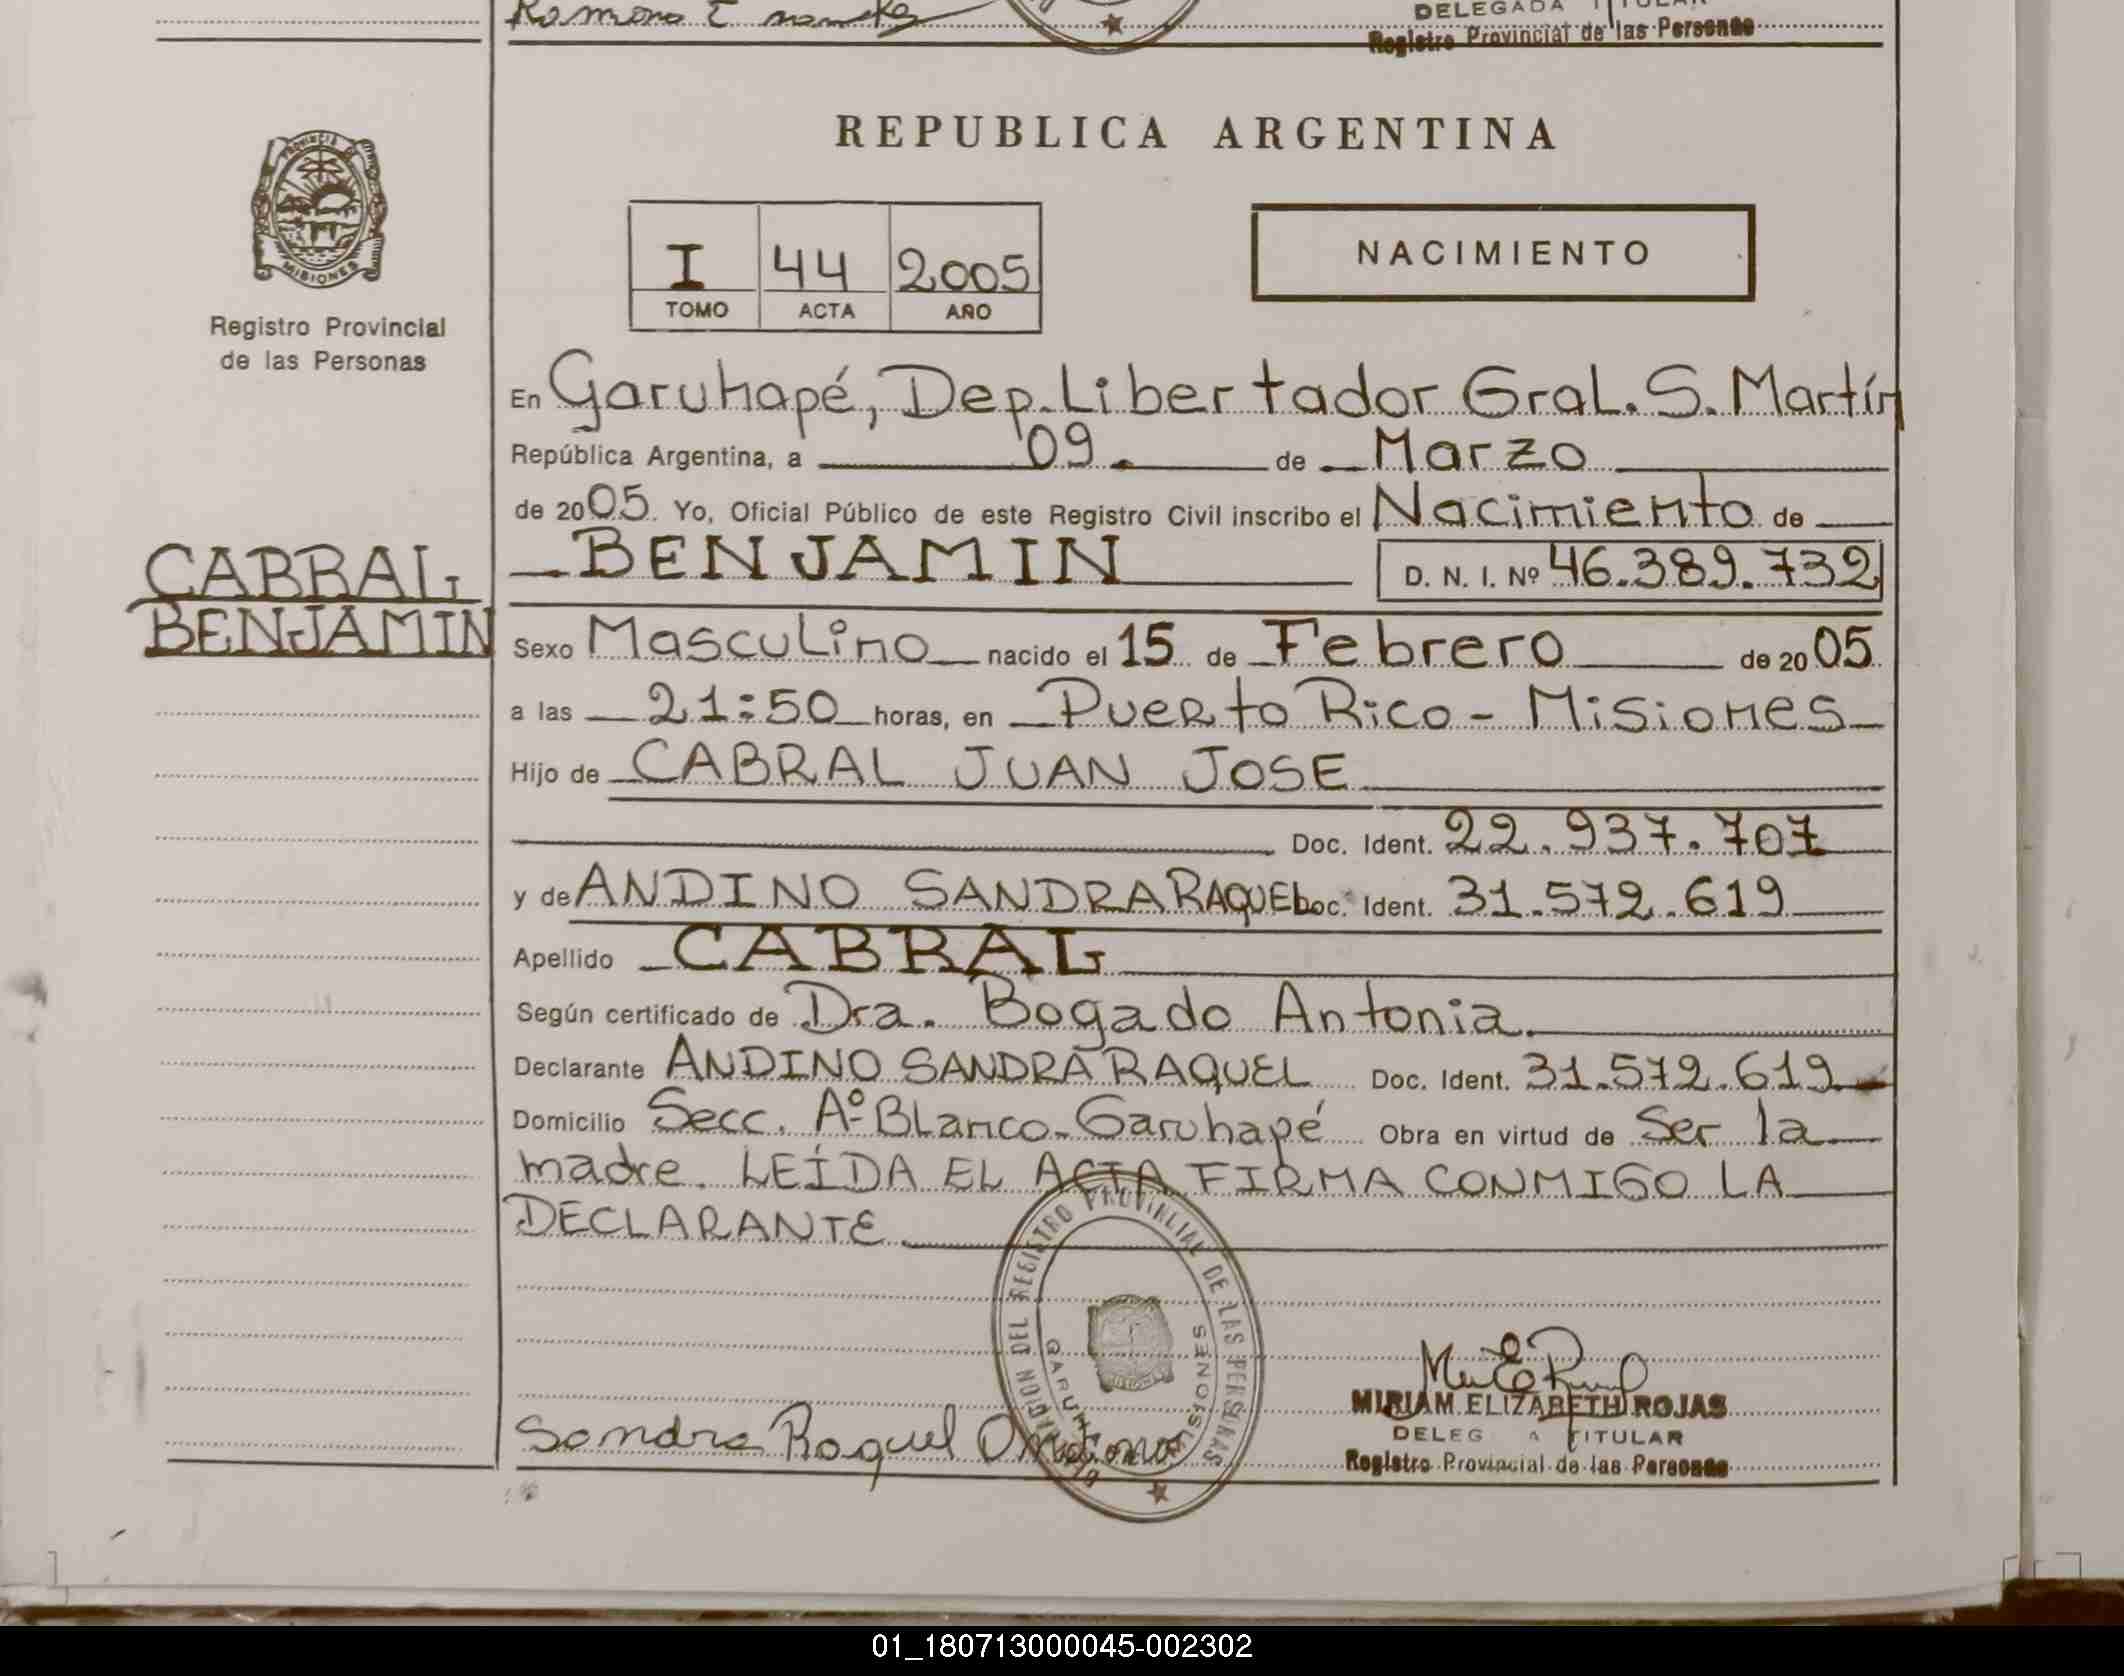 DELEGADA TITULAR
Registro Provincial de las Personas
REPUBLICA ARGENTINA
PROVINCIA DE
MISIONES
Registro Provincial
de las Personas
I 44 2005
TOMO ACTA AÑO
NACIMIENTO
En Garuhapé, Dep. Libertador Gral. S. Martín
República Argentina, a 09. de Marzo
de 2005. Yo, Oficial Público de este Registro Civil inscribo el Nacimiento de
CABRAL
BENJAMIN
BENJAMIN D. N. I. Nº 46.389.732
Sexo Masculino nacido el 15 de Febrero de 2005
a las 21:50 horas, en Puerto Rico - Misiones
Hijo de CABRAL JUAN JOSE
Doc. Ident. 22.937.707
y de ANDINO SANDRA RAQUEL Doc. Ident. 31.572.619
Apellido CABRAL
Según certificado de Dra. Bogado Antonia.
Declarante ANDINO SANDRA RAQUEL Doc. Ident. 31.572.619
Domicilio Secc. Aº Blanco - Garuhapé Obra en virtud de Ser la
madre. LEÍDA EL ACTA FIRMA CONMIGO LA
DECLARANTE
DEL REGISTRO PROVINCIAL DE LAS PERSONAS
MISIONES
MIRIAM ELIZABETH ROJAS
DELEG A TITULAR
Registro Provincial de las Personas
Sandra Raquel Andino
01_180713000045-002302